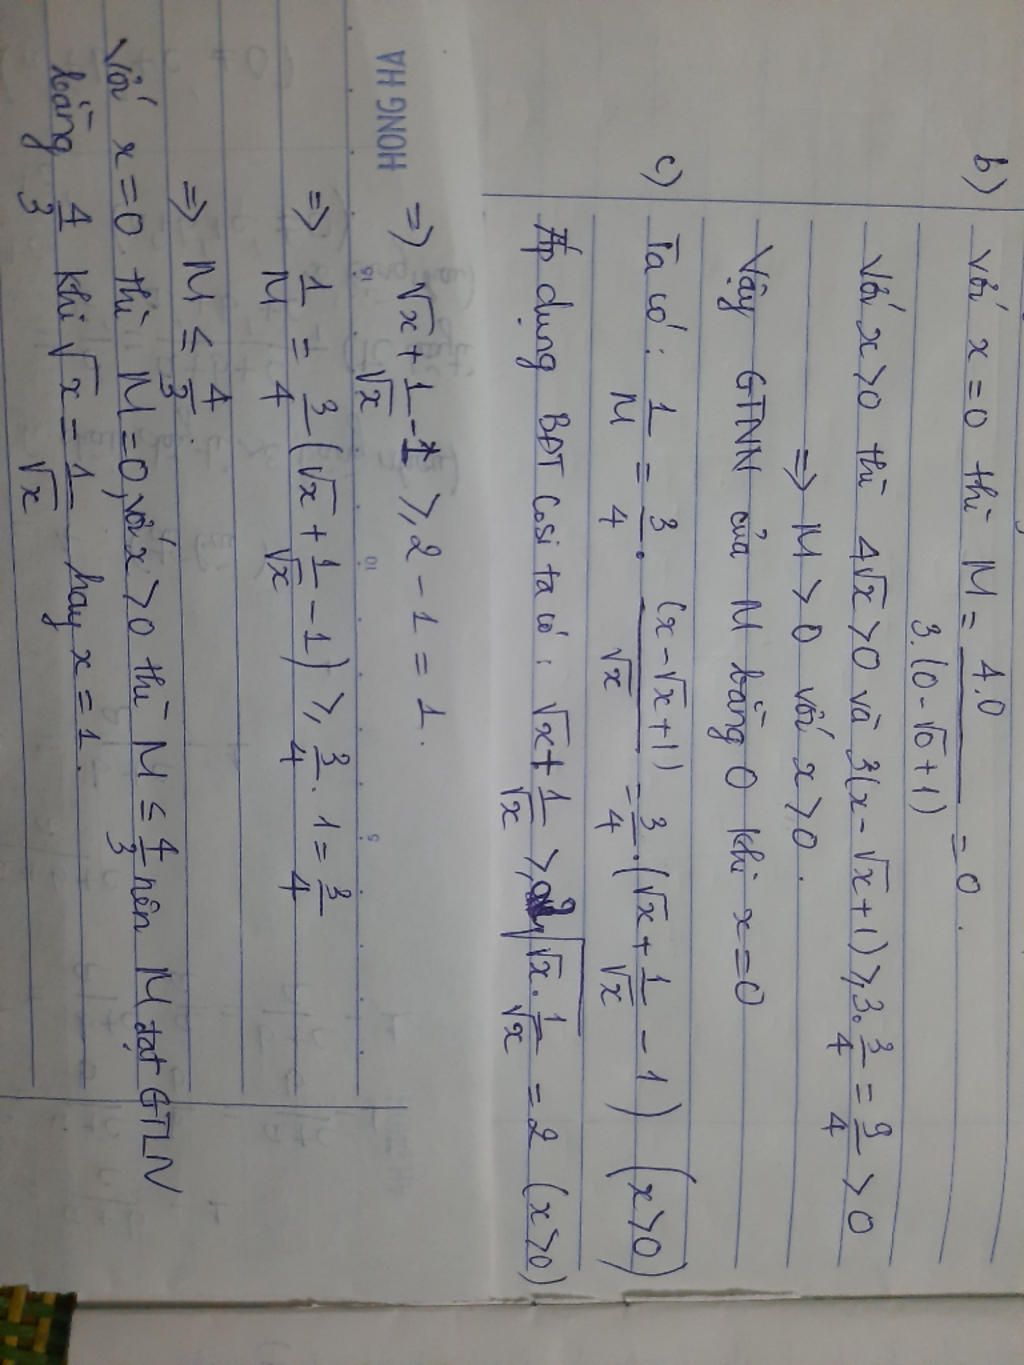 b) Với x = 0 thì M = 4.0 / 3.(0 - √0 + 1) = 0.
Với x > 0 thì 4√x > 0 và 3(x - √x + 1) ≥ 3. 3/4 = 9/4 > 0
=> M > 0 với x > 0.
Vậy GTNN của M bằng 0 khi x = 0
c) Ta có: 1/M = 3/4 . (x - √x + 1)/√x = 3/4 . (√x + 1/√x - 1) (x > 0)
Áp dụng BĐT Cosi ta có: √x + 1/√x ≥ 2√(√x . 1/√x) = 2 (x > 0)
=> √x + 1/√x - 1 ≥ 2 - 1 = 1.
HONG HA
15 10 5
=> 1/M = 3/4 (√x + 1/√x - 1) ≥ 3/4 . 1 = 3/4
=> M ≤ 4/3.
Với x = 0 thì M = 0, với x > 0 thì M ≤ 4/3 nên M đạt GTLN
bằng 4/3 khi √x = 1/√x hay x = 1.